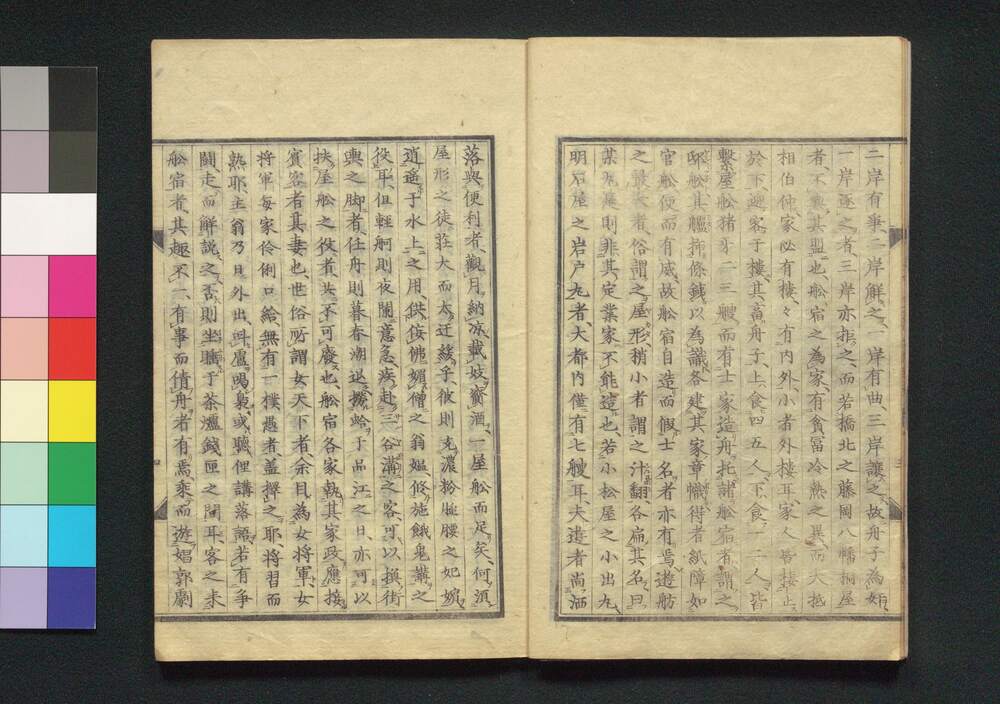 二岸有事、二岸解之、一岸有曲、三岸讓之、故舟子為奸
一岸逐之者、三岸亦拒之、而若橋北之藤岡八幡桐屋
者、不與其盟也、舩宿之為家、有貧冨冷熱之異、而大抵
相伯仲、家必有樓、々有内外、小者外樓耳、家人皆棲止
於下、遊客于樓、其畜舟子、上食四五人、下食一二人、皆
繫屋舩猪牙二三艘、而有士家造舟、托諸舩宿者、謂之
邸舩、其艫揷條鉄以為識、各建其家章幟、待者紙障如
官舩、便而有威、故舩宿自造而假士名者亦有焉、遊舫
之最大者、俗謂之屋形、稍小者謂之汁翻、各扁其名、曰
某丸、是則非其定業家、不能造也、若小松屋之小出丸、
明石屋之岩戸丸者、大都内僅有七艘耳、夫遊者尚洒
落與便利者、觀月納凉、載妓賣酒、一屋舩而足矣、何須
屋形之徒莊大而太迂緩乎、彼則充濃粉脡腰之妃嬪
逍遥于水上之用、供侫佛媚僧之翁嫗修施餓鬼講之
役耳、但輕舸則夜闌意急、疾赴三谷溝之客、可以換街
輿之脚者、任舟則暮春潮退、擻蛤于品江之日、亦可以
扶屋舩之伇者、共不可廢也、舩宿各家、執其家政、應接
賓客者、其妻也、世俗所謂女天下者、余目為女將軍、女
將軍每家伶俐口給、無有一樸愚者、蓋擇之耶、將習而
熟耶、主翁乃日外出、呼盧喝梟、或聽俚講落語、若有爭
鬪、走而解説之、否則坐睡于茶爐錢匣之間耳、客之来
舩宿者、其趣不一、有事而倩舟者有焉、乘而遊娼郭劇